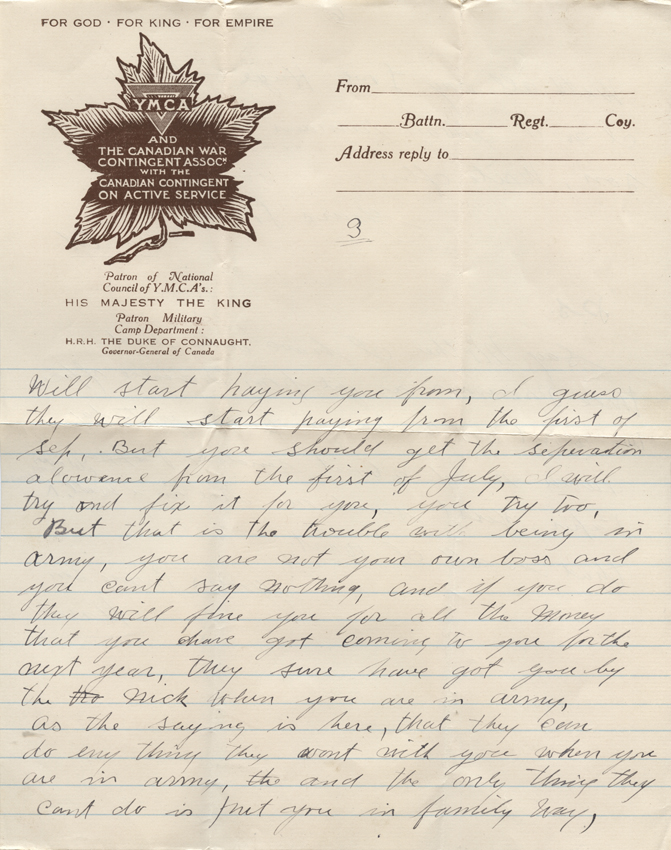 FOR GOD · FOR KING · FOR EMPIRE
YMCA
AND
THE CANADIAN WAR
CONTINGENT ASSOCN
WITH THE
CANADIAN CONTINGENT
ON ACTIVE SERVICE
Patron of National
Council of Y.M.C.A's.:
HIS MAJESTY THE KING
Patron Military
Camp Department:
H.R.H. THE DUKE OF CONNAUGHT,
Governor-General of Canada
From
Battn. Regt. Coy.
Address reply to
3
Will start paying you from, I guess
they will start paying from the first of
sep, But you should get the seperation
alowence from the first of July, I will
try and fix it for you, you try too,
But that is the trouble with being in
army, you are not your own boss and
you cant say nothing, and if you do
they will fine you for all the money
that you have got coming to you for the
next year, they sure have got you by
the nick when you are in army,
as the saying is here, that they can
do eny thing they want with you when you
are in army, the and the only thing they
cant do is put you in family way,